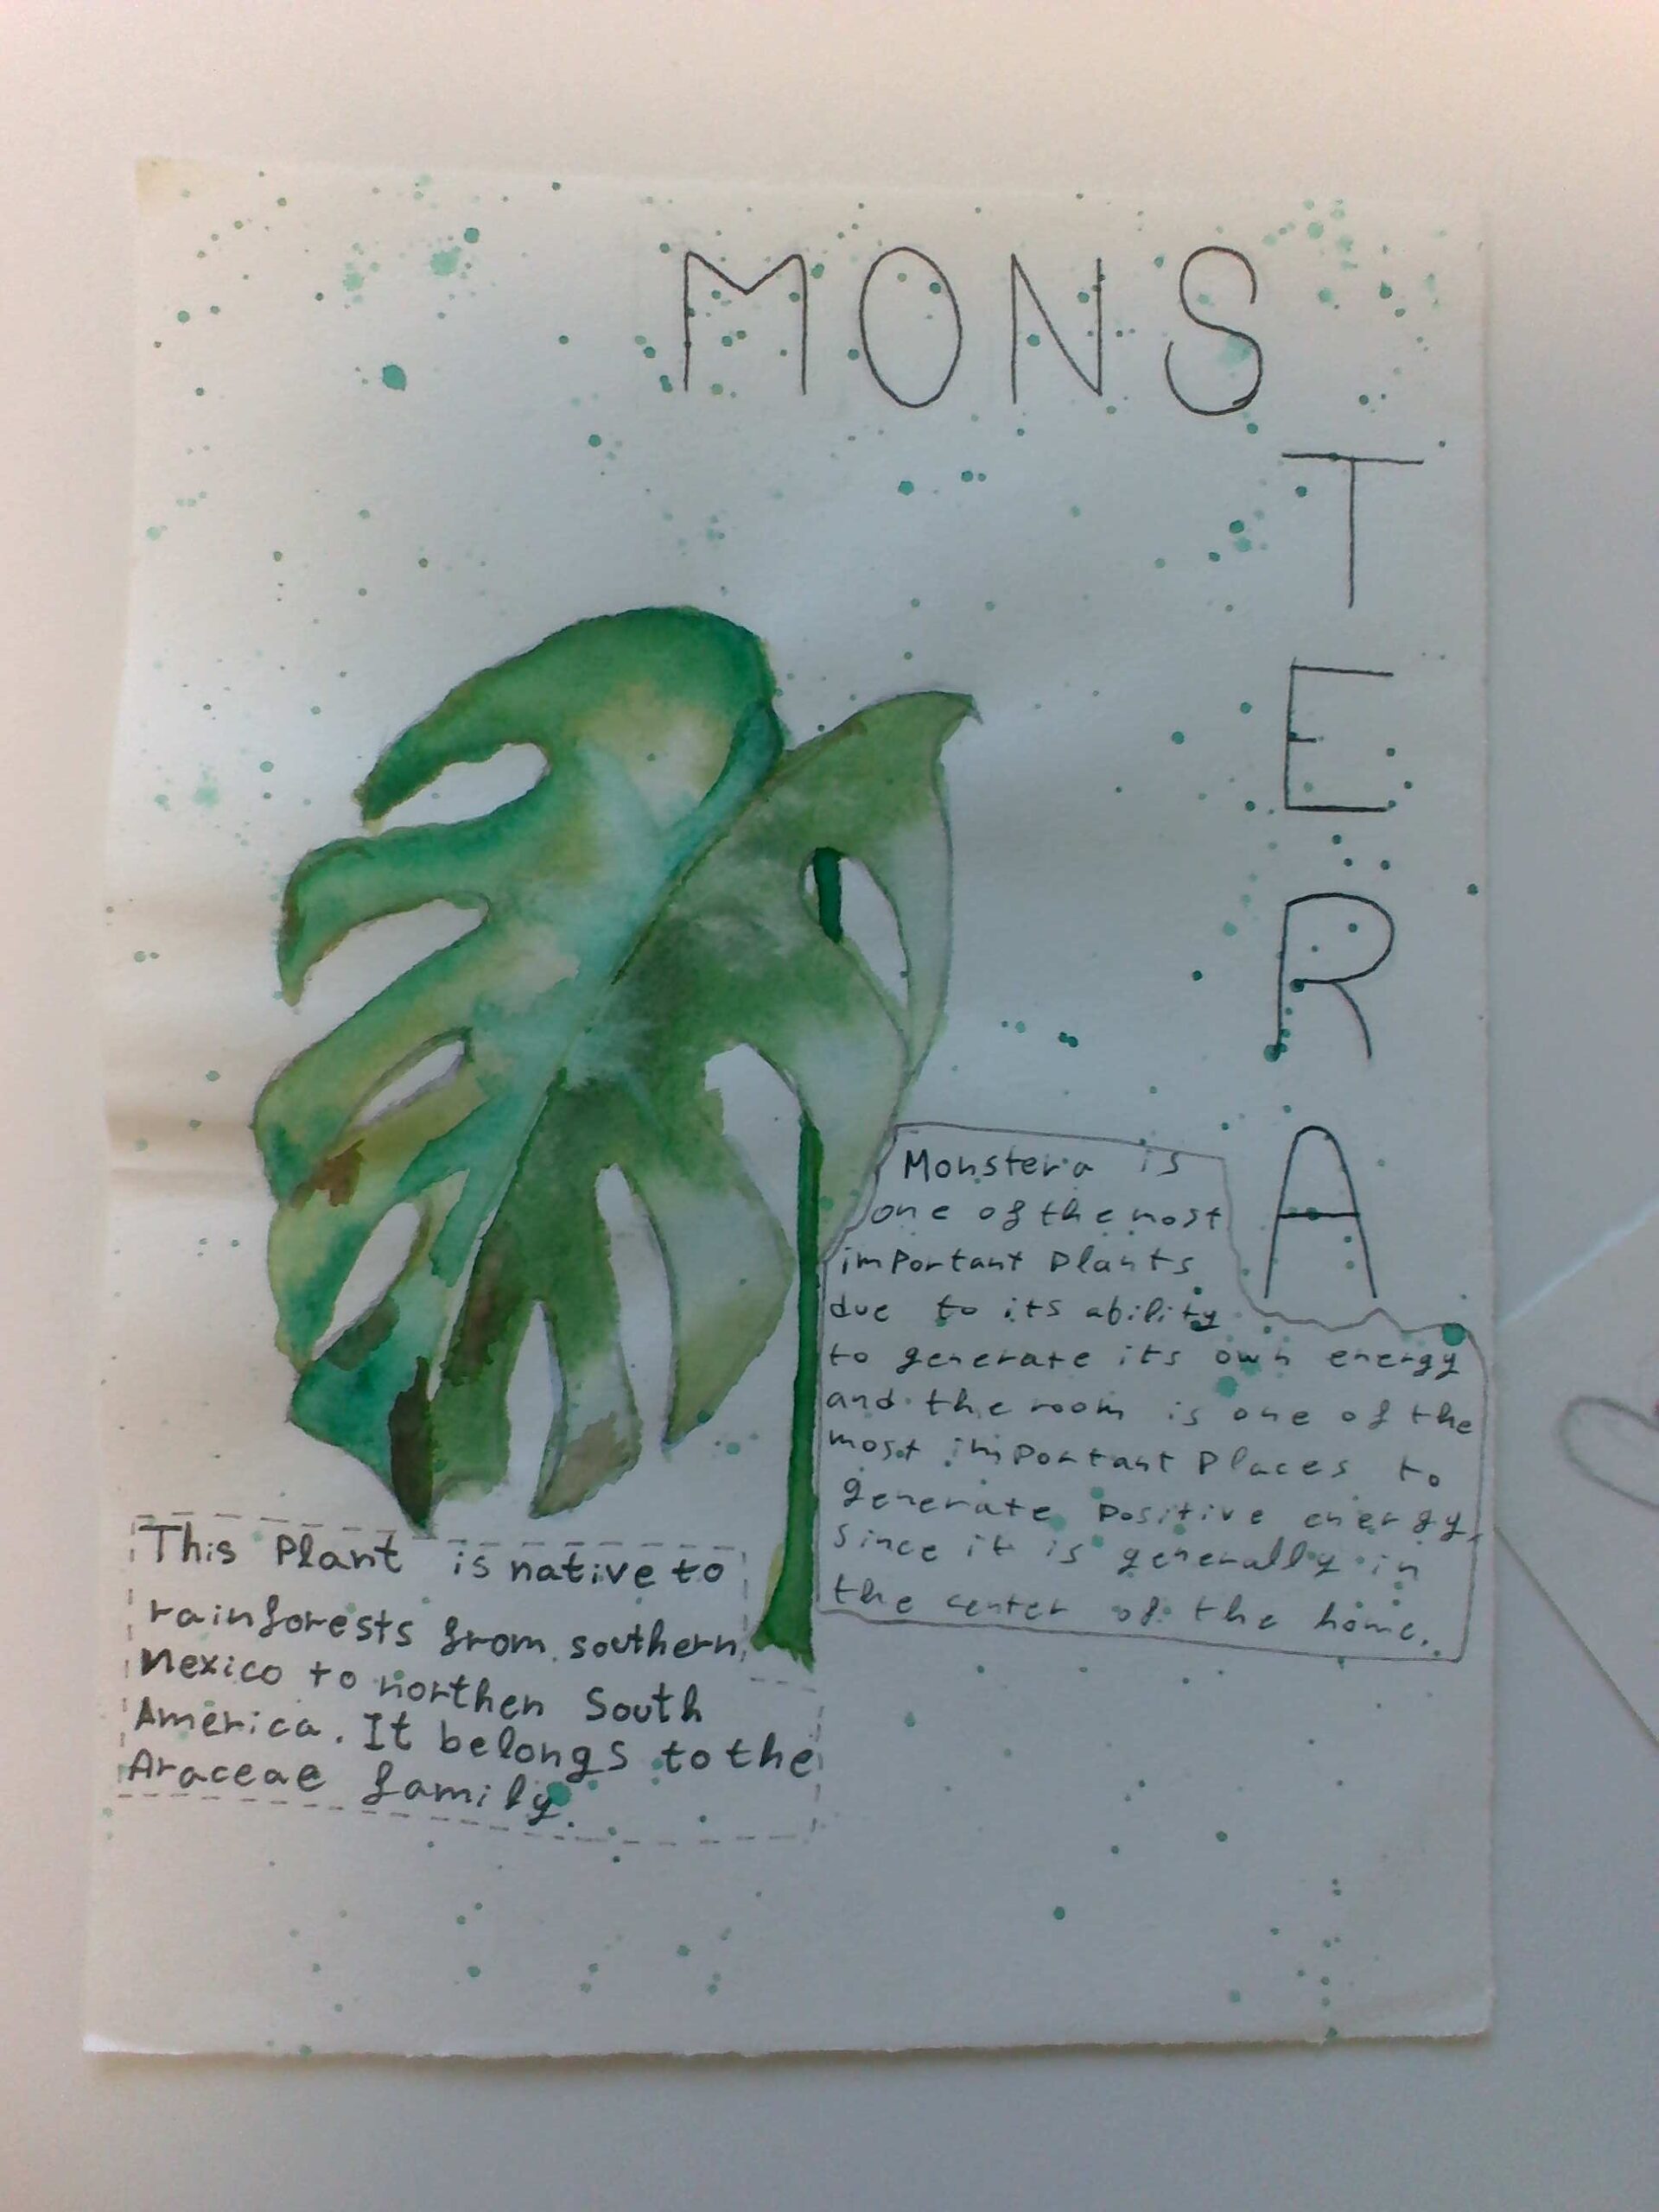 MONSTERA
Monstera is
one of the most
important plants
due to its ability
to generate its own energy
and the room is one of the
most important Places to
generate positive energy,
since it is generally in
the center of the home.
This Plant is native to
rainforests from southern
Mexico to northen South
America. It belongs to the
Araceae family.